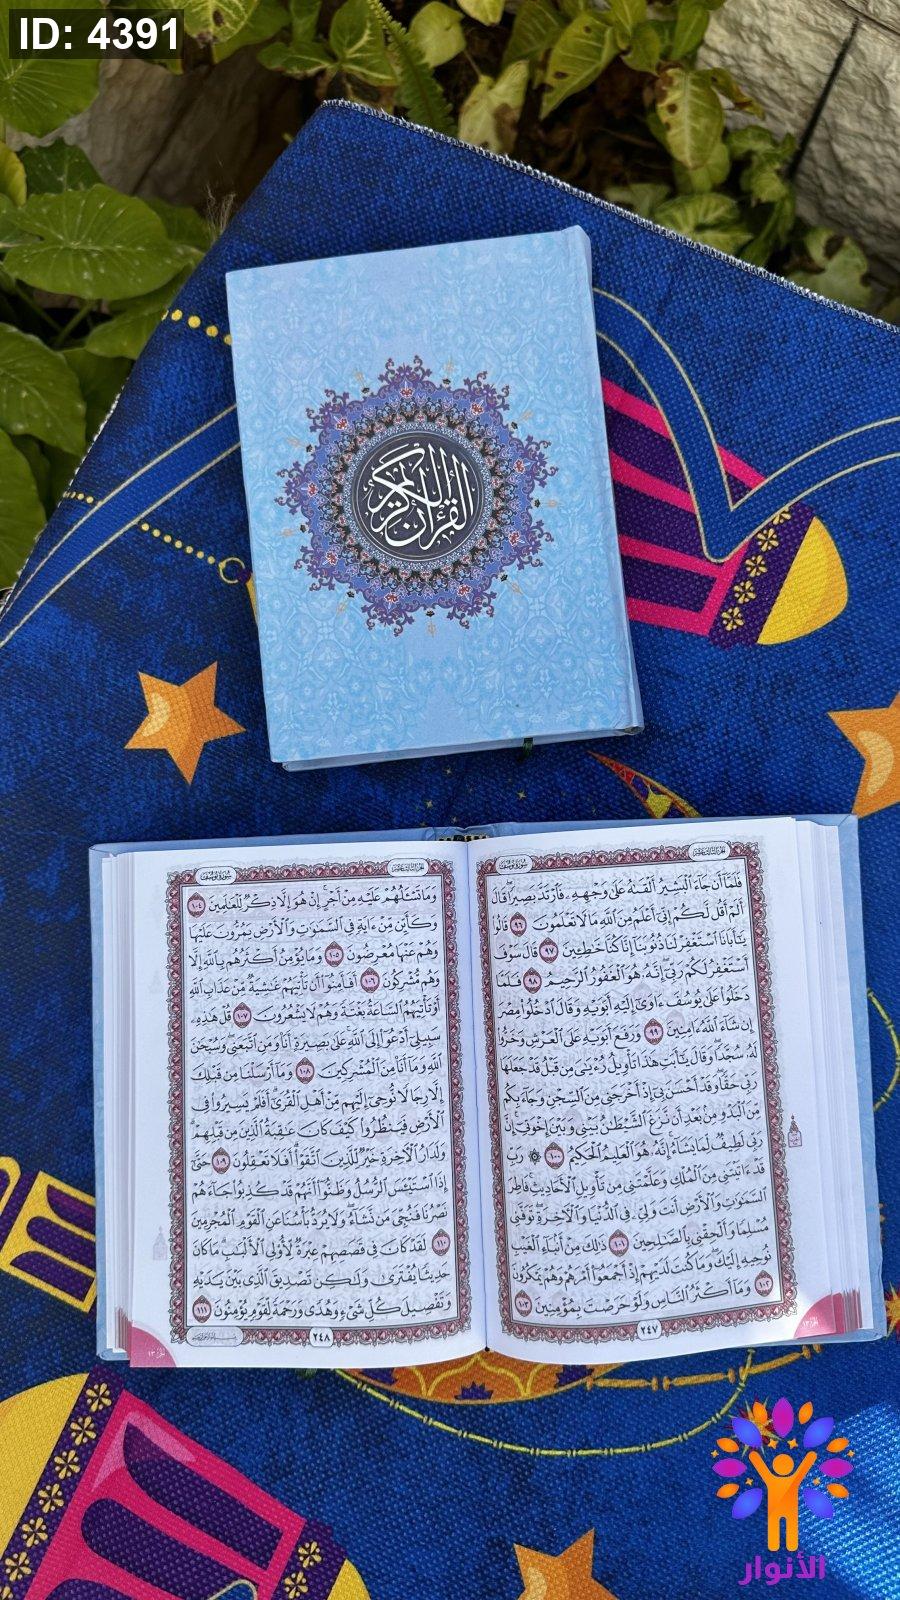 ID: 4391
القرآن الكريم
سورة يوسف
الجزء الثالث عشر
فَلَمَّا أَن جَاءَ الْبَشِيرُ أَلْقَاهُ عَلَى وَجْهِهِ فَارْتَدَّ بَصِيرًا قَالَ
أَلَمْ أَقُل لَّكُمْ إِنِّي أَعْلَمُ مِنَ اللَّهِ مَا لَا تَعْلَمُونَ ٩٦ قَالُوا
يَا أَبَانَا اسْتَغْفِرْ لَنَا ذُنُوبَنَا إِنَّا كُنَّا خَاطِئِينَ ٩٧ قَالَ سَوْفَ
أَسْتَغْفِرُ لَكُمْ رَبِّي إِنَّهُ هُوَ الْغَفُورُ الرَّحِيمُ ٩٨ فَلَمَّا
دَخَلُوا عَلَى يُوسُفَ آوَى إِلَيْهِ أَبَوَيْهِ وَقَالَ ادْخُلُوا مِصْرَ
إِن شَاءَ اللَّهُ آمِنِينَ ٩٩ وَرَفَعَ أَبَوَيْهِ عَلَى الْعَرْشِ وَخَرُّوا
لَهُ سُجَّدًا وَقَالَ يَا أَبَتِ هَذَا تَأْوِيلُ رُءْيَايَ مِن قَبْلُ قَدْ جَعَلَهَا
رَبِّي حَقًّا وَقَدْ أَحْسَنَ بِي إِذْ أَخْرَجَنِي مِنَ السِّجْنِ وَجَاءَ بِكُم
مِّنَ الْبَدْوِ مِن بَعْدِ أَن نَّزَغَ الشَّيْطَانُ بَيْنِي وَبَيْنَ إِخْوَتِي إِنَّ
رَبِّي لَطِيفٌ لِّمَا يَشَاءُ إِنَّهُ هُوَ الْعَلِيمُ الْحَكِيمُ ١٠٠ ۞ رَبِّ
قَدْ آتَيْتَنِي مِنَ الْمُلْكِ وَعَلَّمْتَنِي مِن تَأْوِيلِ الْأَحَادِيثِ فَاطِرَ
السَّمَاوَاتِ وَالْأَرْضِ أَنتَ وَلِيِّي فِي الدُّنْيَا وَالْآخِرَةِ تَوَفَّنِي
مُسْلِمًا وَأَلْحِقْنِي بِالصَّالِحِينَ ١٠١ ذَلِكَ مِنْ أَنبَاءِ الْغَيْبِ
نُوحِيهِ إِلَيْكَ وَمَا كُنتَ لَدَيْهِمْ إِذْ أَجْمَعُوا أَمْرَهُمْ وَهُمْ يَمْكُرُونَ
١٠٢ وَمَا أَكْثَرُ النَّاسِ وَلَوْ حَرَصْتَ بِمُؤْمِنِينَ ١٠٣
٢٤٧
سورة يوسف
الجزء الثالث عشر
وَمَا تَسْأَلُهُمْ عَلَيْهِ مِنْ أَجْرٍ إِنْ هُوَ إِلَّا ذِكْرٌ لِّلْعَالَمِينَ ١٠٤
وَكَأَيِّن مِّنْ آيَةٍ فِي السَّمَاوَاتِ وَالْأَرْضِ يَمُرُّونَ عَلَيْهَا
وَهُمْ عَنْهَا مُعْرِضُونَ ١٠٥ وَمَا يُؤْمِنُ أَكْثَرُهُم بِاللَّهِ إِلَّا
وَهُم مُّشْرِكُونَ ١٠٦ أَفَأَمِنُوا أَن تَأْتِيَهُمْ غَاشِيَةٌ مِّنْ عَذَابِ اللَّهِ
أَوْ تَأْتِيَهُمُ السَّاعَةُ بَغْتَةً وَهُمْ لَا يَشْعُرُونَ ١٠٧ قُلْ هَذِهِ
سَبِيلِي أَدْعُو إِلَى اللَّهِ عَلَى بَصِيرَةٍ أَنَا وَمَنِ اتَّبَعَنِي وَسُبْحَانَ
اللَّهِ وَمَا أَنَا مِنَ الْمُشْرِكِينَ ١٠٨ وَمَا أَرْسَلْنَا مِن قَبْلِكَ
إِلَّا رِجَالًا نُّوحِي إِلَيْهِم مِّنْ أَهْلِ الْقُرَى أَفَلَمْ يَسِيرُوا فِي
الْأَرْضِ فَيَنظُرُوا كَيْفَ كَانَ عَاقِبَةُ الَّذِينَ مِن قَبْلِهِمْ
وَلَدَارُ الْآخِرَةِ خَيْرٌ لِّلَّذِينَ اتَّقَوْا أَفَلَا تَعْقِلُونَ ١٠٩ حَتَّى
إِذَا اسْتَيْأَسَ الرُّسُلُ وَظَنُّوا أَنَّهُمْ قَدْ كُذِبُوا جَاءَهُمْ
نَصْرُنَا فَنُجِّيَ مَن نَّشَاءُ وَلَا يُرَدُّ بَأْسُنَا عَنِ الْقَوْمِ الْمُجْرِمِينَ
١١٠ لَقَدْ كَانَ فِي قَصَصِهِمْ عِبْرَةٌ لِّأُولِي الْأَلْبَابِ مَا كَانَ
حَدِيثًا يُفْتَرَى وَلَكِن تَصْدِيقَ الَّذِي بَيْنَ يَدَيْهِ
وَتَفْصِيلَ كُلِّ شَيْءٍ وَهُدًى وَرَحْمَةً لِّقَوْمٍ يُؤْمِنُونَ ١١١
٢٤٨
الأنوار